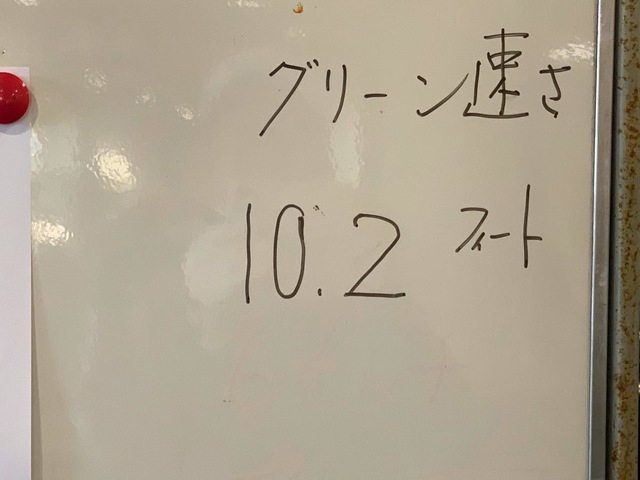 グリーン速さ
10.2 フィート